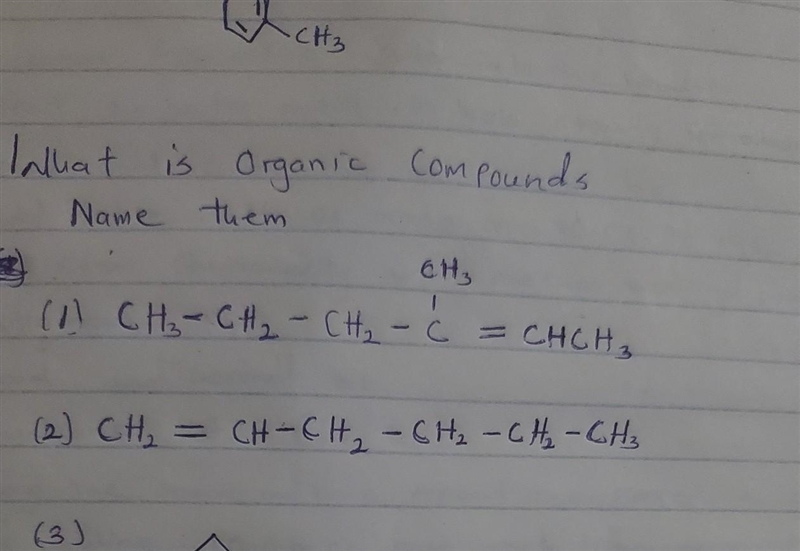 CH₃
What is Organic Compounds
Name them
CH₃
(1) CH₃ – CH₂ – CH₂ – C = CHCH₃
(2) CH₂ = CH – CH₂ – CH₂ – CH₂ – CH₃
(3)